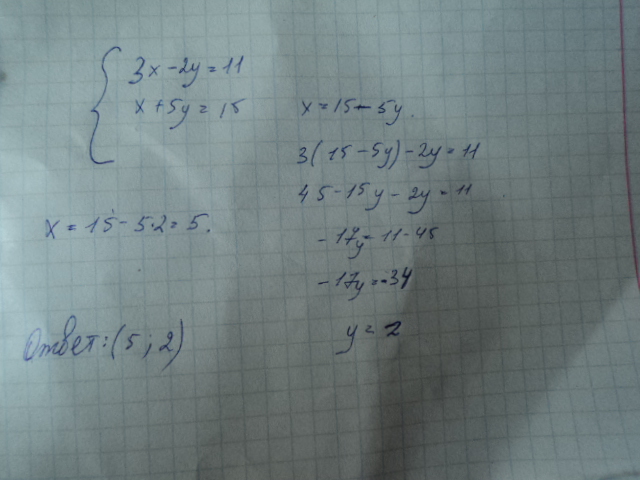 3x - 2y = 11
x + 5y = 15
x = 15 - 5y.
3(15 - 5y) - 2y = 11
45 - 15y - 2y = 11
-17y = 11 - 45
-17y = -34
y = 2
x = 15 - 5·2 = 5.
Ответ: (5; 2)